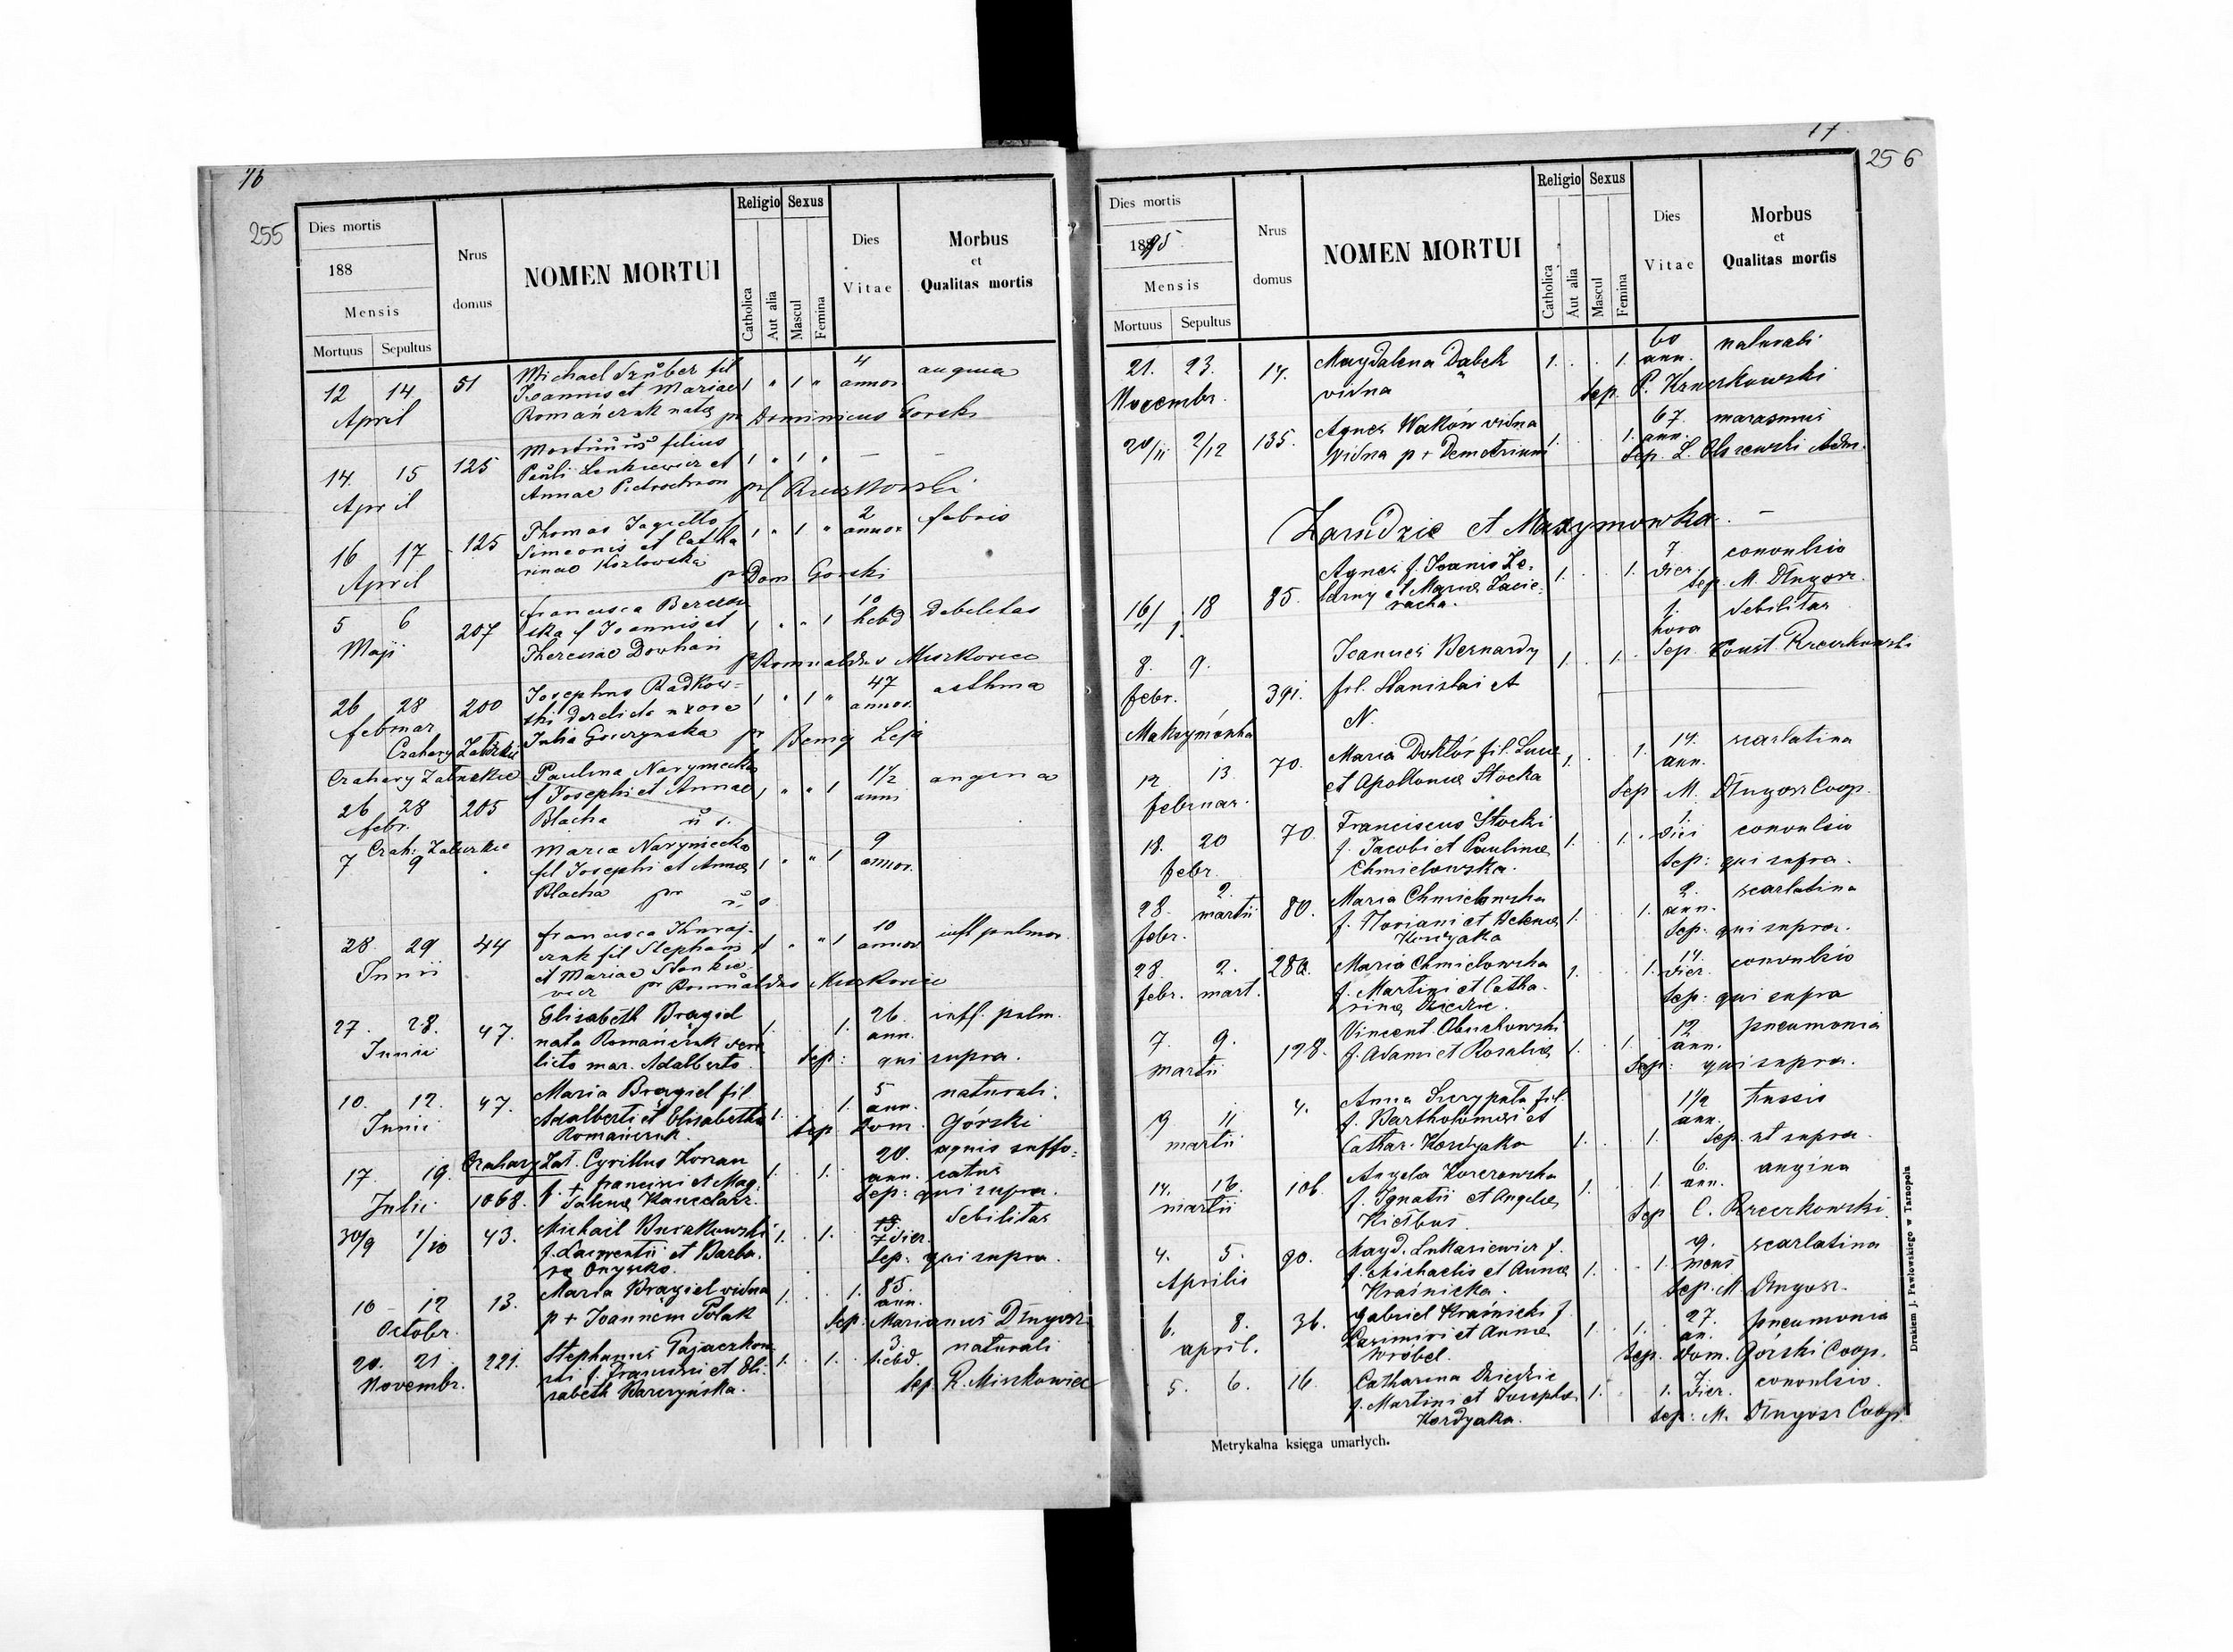 16
255
Dies mortis
188
Mensis
Mortuus Sepultus
Nrus domus
NOMEN MORTUI
Religio Sexus
Catholica
Aut alia
Mascul
Femina
Dies Vitae
Morbus
et
Qualitas mortis
12 14 51 Michael Szuber fil 4
Joannis et Mariae 1 " 1 " annor angina
April Romańczuk nata pr Dominicus Gorski
Mortuus filius
14 15 125 Pauli Lenkiewicz et 1 " 1 " — —
April Annae
Thomas Jagiełło f 2 febris
16 17 125 Simeonis et Catha 1 " 1 " annor
April rinae Kozlowska
pr Dom Gorski
Francisca 10
5 6 207 ska f Joannis et 1 " " 1 hebd debilitas
Maji Theresiae Dowhań
pr Romualdus Miszkowicz
Josephus Radkow- 47 asthma
26 28 200 ski derelicta uxore 1 " 1 " annor.
februar Julia pr Remig Leja
Czahary Zbarazkie
Paulina Narymecka 1½ angina
26 28 205 f Josephi et Annae 1 " " 1 anni
febr. Blacha u s.
Maria Narymecka 9
7 9 fil Josephi et Annae 1 " " 1 annor.
Blacha pr u s
Francisca 10
28 29 44 fil Stephani 1 " " 1 annor infl pulmon.
Junii et Mariae Stankie
wicz pr Romualdus Miszkowicz
Elisabeth Brągiel 26
27. 28. 47. nata Romańczuk dere 1. 1. ann. infl. pulm.
Junii licto mar. Adalberto. Sep: qui supra.
Maria Brągiel fil 5 naturali.
10. 12. 47. Adalberti et Elisabetha 1. 1. ann.
Junii Romańczuk. Sep Dom. Górski
Czahary Zat. Cyrillus 20. aquis suffo-
17 19. f. + Francisci et Mag- 1. 1. ann. catus
Julii 1068. dalena Kancelarz. Sep: qui supra.
30/9 1/10 43. Michail Burakowski 1. 1. 7 dier. debilitas
f. Laurentii et Barba- Sep: qui supra.
rae Onyszko.
10 12 13. Maria Brągiel vidua 1. 1. 85. ann.
Octobr. p + Joannem Polak Sep. Marianus Długosz
20. 21 221. Stephanus Pajaczkow 3 naturali
Novembr. ski f. Francisci et Eli- 1. 1. hebd.
sabeth Karczyńska. Sep R. Miszkowicz
17.
256
Dies mortis
1895.
Mensis
Mortuus Sepultus
Nrus domus
NOMEN MORTUI
Religio Sexus
Catholica
Aut alia
Mascul
Femina
Dies Vitae
Morbus
et
Qualitas mortis
21. 23. 14. Magdalena Dąbek 1. 1. 60 ann. naturali
Novembr. vidua Sep. P. Krueszkowski
Agnes Waków vidua 67. marasmus
20/11 2/12 135. vidua p + Demetrium 1. 1. ann.
Sep. L. Olszewski Adm.
Zarudzie et Maxymowka. —
Agnes f. Joanis Że- 7 convulsio
16/1 18 85. larny et Maria 1. 1. dier.
Sep. M. Długosz.
1. hora debilitas
8. 9. Joannes Bernardy 1. 1. Sep. Konst. Rzeczkowski
febr. 391. fil. Stanislai et
Maksymówka N.
12 13 70. Maria Doktór fil. Luca 1. 1. 14. ann. scarlatina
februar. et Apolonia Stocka Sep M. Długosz Coop.
18. 20 70. Franciscus Stocki 1. dies convulsio
febr. f. Jacobi et Paulina 1. 1. Sep: qui supra.
Chmielowska.
28. 2. martii 80. Maria Chmielowska 2. ann. scarlatina
febr. f. Floriani et Helena 1. 1. Sep: qui supra.
Kordyaka
28 2. 286. Maria Chmielowska 1. 1. 14. dier. convulsio
febr. mart. f. Martini et Catha-
rina Dziedzic. Sep: qui supra
7. 9. 128. Vincent Obuchowski 12 ann. pneumonia
martii f. Adami et Rosalia 1. 1. Sep: qui supra.
9 11 4. Anna Szczypała fil. 1½ ann. tussis
martii f. Bartholomaei et
Cathar. Kordyaka 1. 1. Sep. ut supra.
14. 16. 106. Angela Korczowska 6. ann. angina
martii f. Ignatii et Angela 1. 1.
Kiełbus. Sep C. Rzeczkowski.
4. 5. 90. Magd. Lukasiewicz f. 9. mens scarlatina
Aprilis f. Michaelis et Anna 1. 1.
Kraśnicka. Sep. M. Długosz.
6. 8. 36. Gabriel Kraśnicki f. 27. an. pneumonia
april. Casimiri et Anna 1. 1.
Wróbel. Sep. Dom. Górski Coop.
5. 6. 16. Catharina Dziedzic 7. dier. convulsio.
f. Martini et Josepha 1. 1.
Kordyaka. Sep: M. Długosz Coop.
Metrykalna księga umarłych.
Drukiem J. Pawłowskiego w Tarnopolu